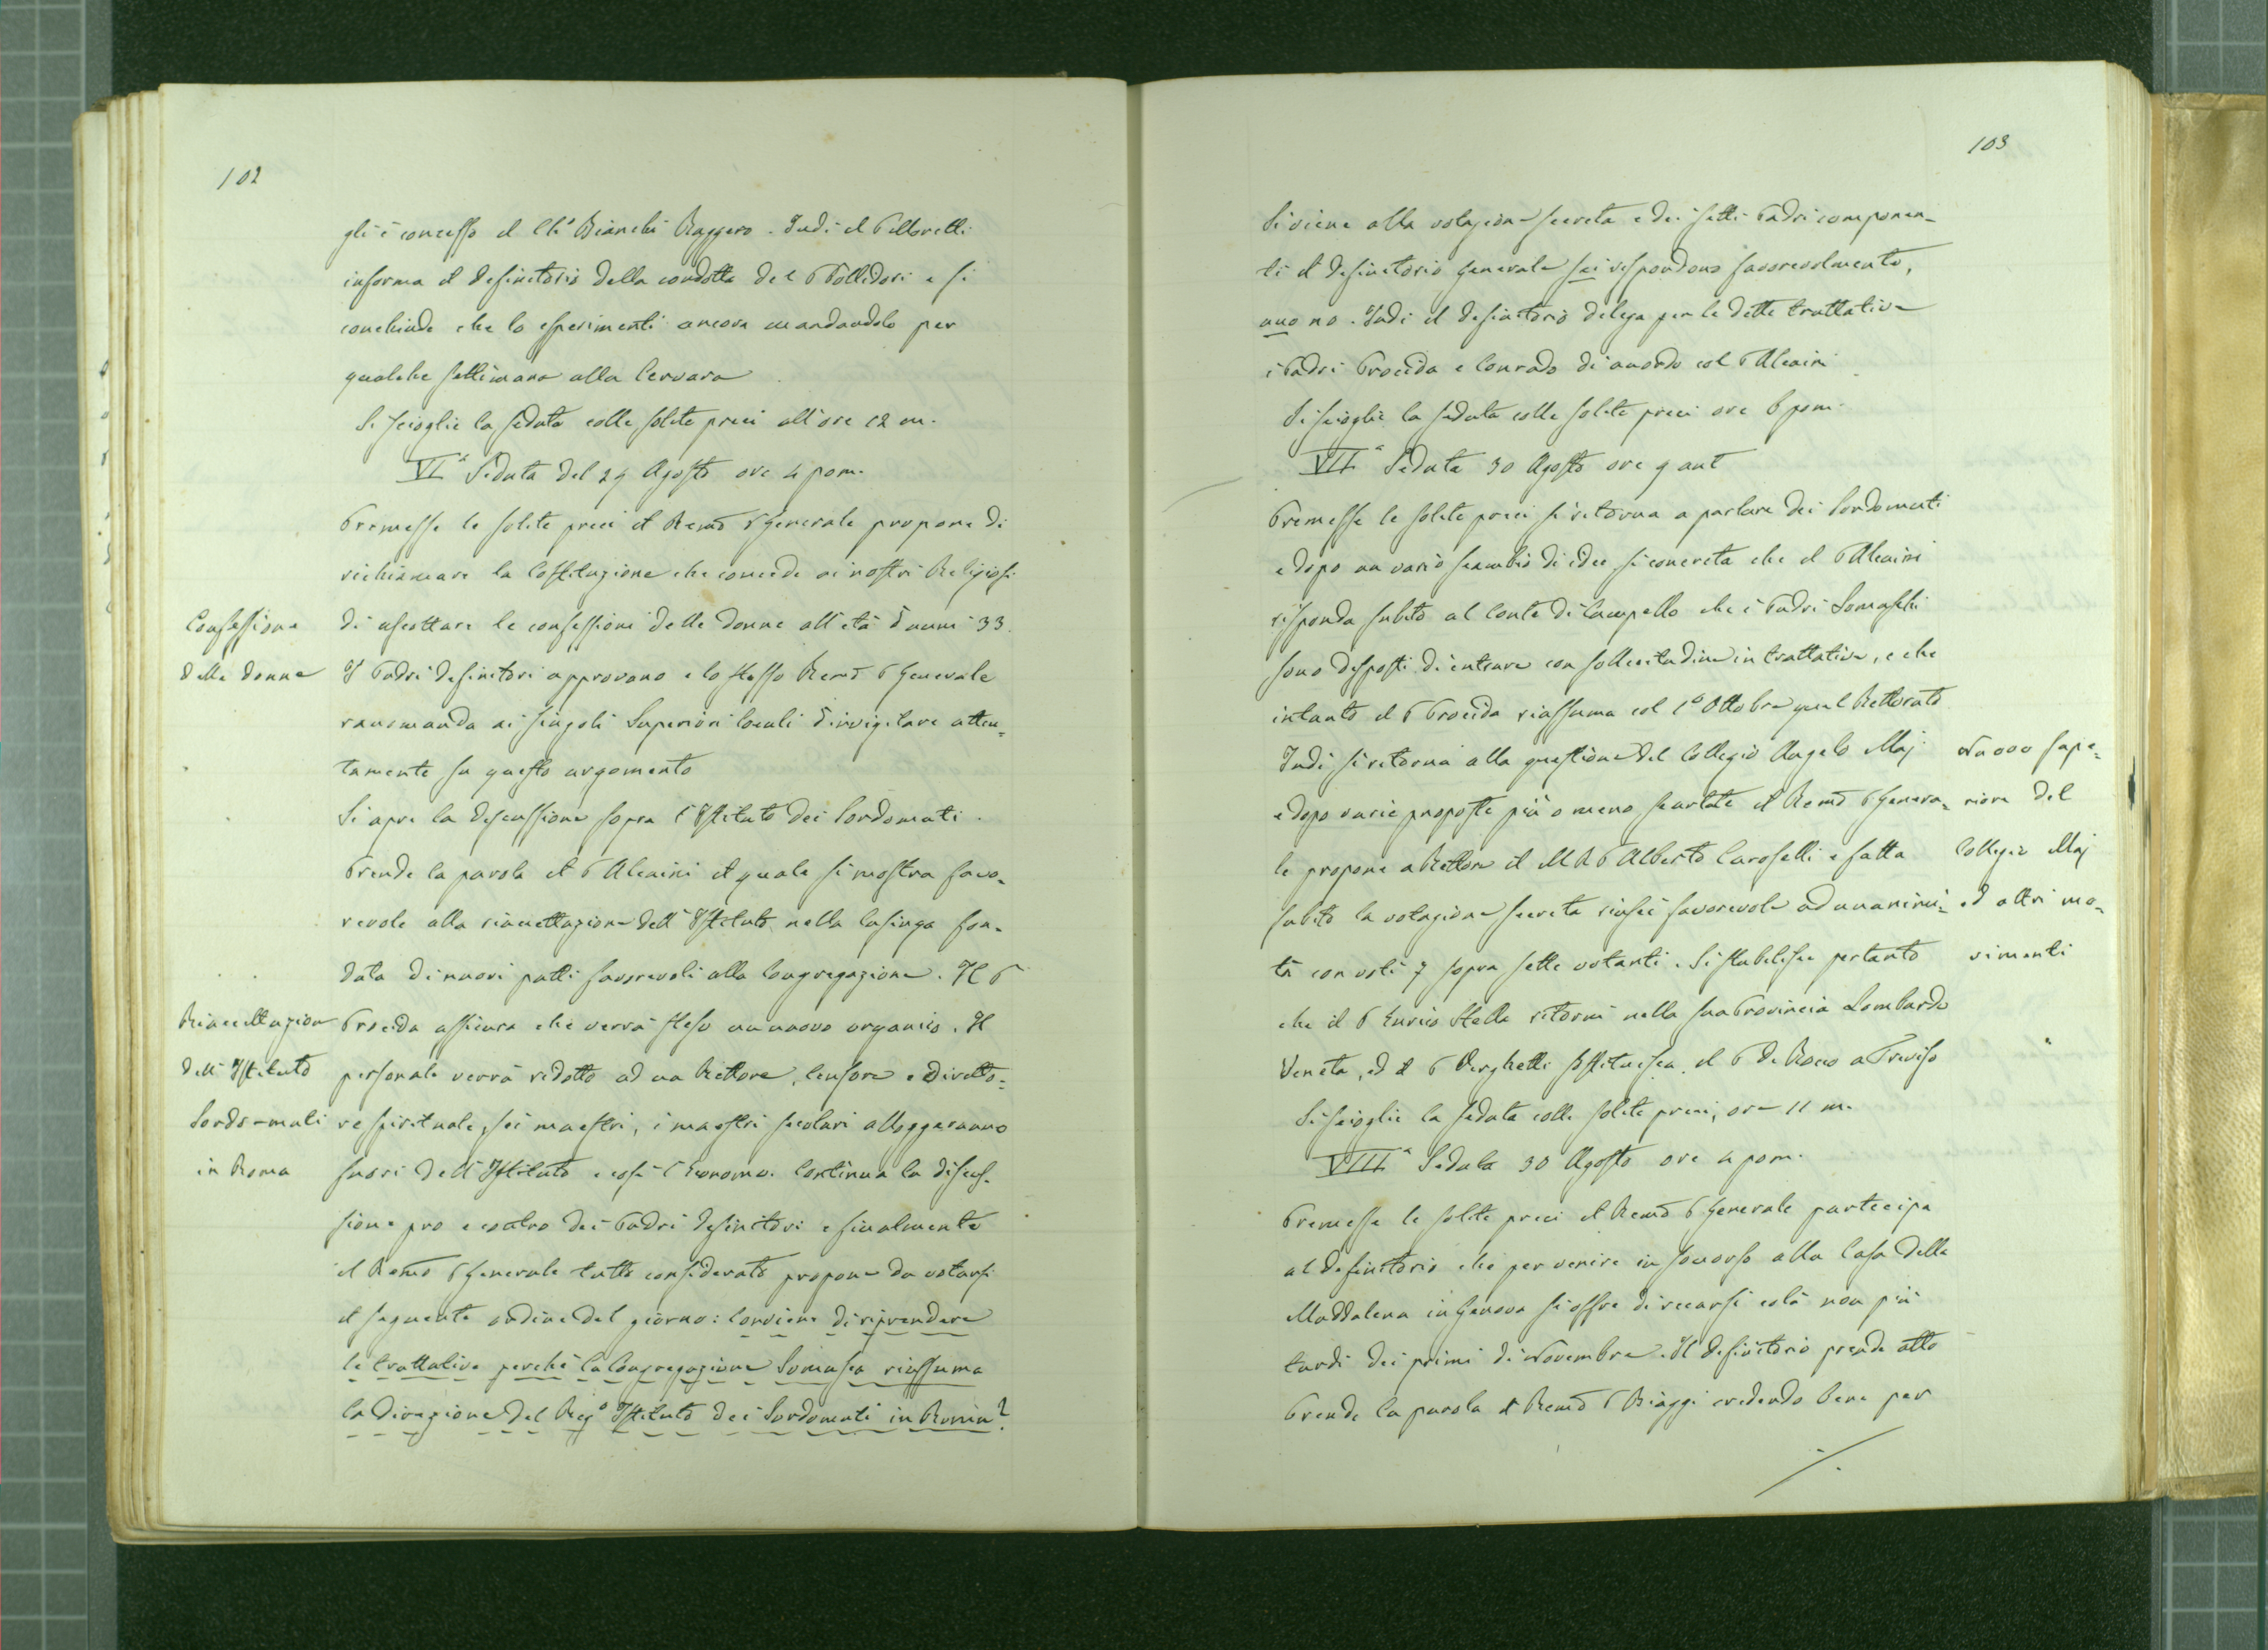 102
gli è concesso il Ch.º Bianchi Ruggero. Indi il P Moretti
informa il Definitorio della condotta del P Pollidori e si
conchiude che lo esperimenti ancora mandandolo per
qualche settimana alla Cervara
Si scioglie la seduta colle solite preci all'ore 12 m.
VIª Seduta del 29 Agosto ore 4 pom.
Premesse le solite preci il Remo P Generale propone di
richiamare la Costituzione che concede ai nostri Religiosi
di ascoltare le confessioni delle donne all'età d'anni 33.
I Padri Definitori approvano e lo stesso Remo P Generale
raccomanda ai singoli Superiori locali d'invigilare atten=
tamente su questo argomento
Si apre la discussione sopra l'Istituto dei Sordomuti.
Prende la parola il P Alcaini il quale si mostra favo=
revole alla riaccettazione dell'Istituto nella lusinga fon=
data di nuovi patti favorevoli alla Congregazione. Il P
Procida assicura che verrà steso un nuovo organico. Il
personale verrà ridotto ad un Rettore, Censore e Diretto=
re spirituale, sei maestri, i maestri secolari alloggeranno
fuori dell'Istituto e così l'Economo. Continua la discus=
sione pro e contro dei Padri Definitori e finalmente
il Remo P Generale tutto considerato propone da votarsi
il seguente ordine del giorno: Conviene di riprendere
le trattative perchè la Congregazione Somasca riassuma
la direzione del Regº Istituto dei Sordomuti in Roma?
Confessione
delle donne
Riaccettazione
dell'Istituto
Sordo-muti
in Roma
103
Si viene alla votazione secreta e dei setti Padri componen=
ti il Definitorio Generale sei rispondono favorevolmente,
uno no. Indi il Definitorio delega per le dette trattative
i Padri Procida e Conrado di accordo col P Alcaini
Si scioglie la seduta colle solite preci ore 6 pom.
VIIª Seduta 30 Agosto ore 9 ant
Premesse le solite preci si ritorna a parlare dei Sordomuti
e dopo un vario scambio di idee si concreta che il P Alcaini
risponda subito al Conte di Campello che i Padri Somaschi
sono disposti di entrare con sollecitudine in trattative, e che
intanto il P Procida riassuma col 1º Ottobre quel Rettorato
Indi si ritorna alla questione del Collegio Angelo Maj
e dopo varie proposte più o meno scartate il Remo P Genera=
le propone a Rettore il M R P Alberto Caroselli e fatta
subito la votazione secreta riuscì favorevole ad unanimi=
tà con voti 7 sopra sette votanti. Si stabilisce pertanto
che il P Enrico Stella ritorni nella sua Provincia Lombardo
Veneta, ed il P Verghetti sostituisca il P De Rocco a Treviso
Si scioglie la seduta colle solite preci, ore 11 m.
VIIIª Seduta 30 Agosto ore 4 pom.
Premesse le solite preci il Remo P Generale partecipa
al Definitorio che per venire in soccorso alla Casa della
Maddalena in Genova si offre di recarsi colà non più
tardi dei primi di Novembre. Il Definitorio prende atto
Prende la parola il Remo P Biaggi credendo bene per
Nuovo Supe=
riore del
Collegio Maj
ed altri mo=
vimenti